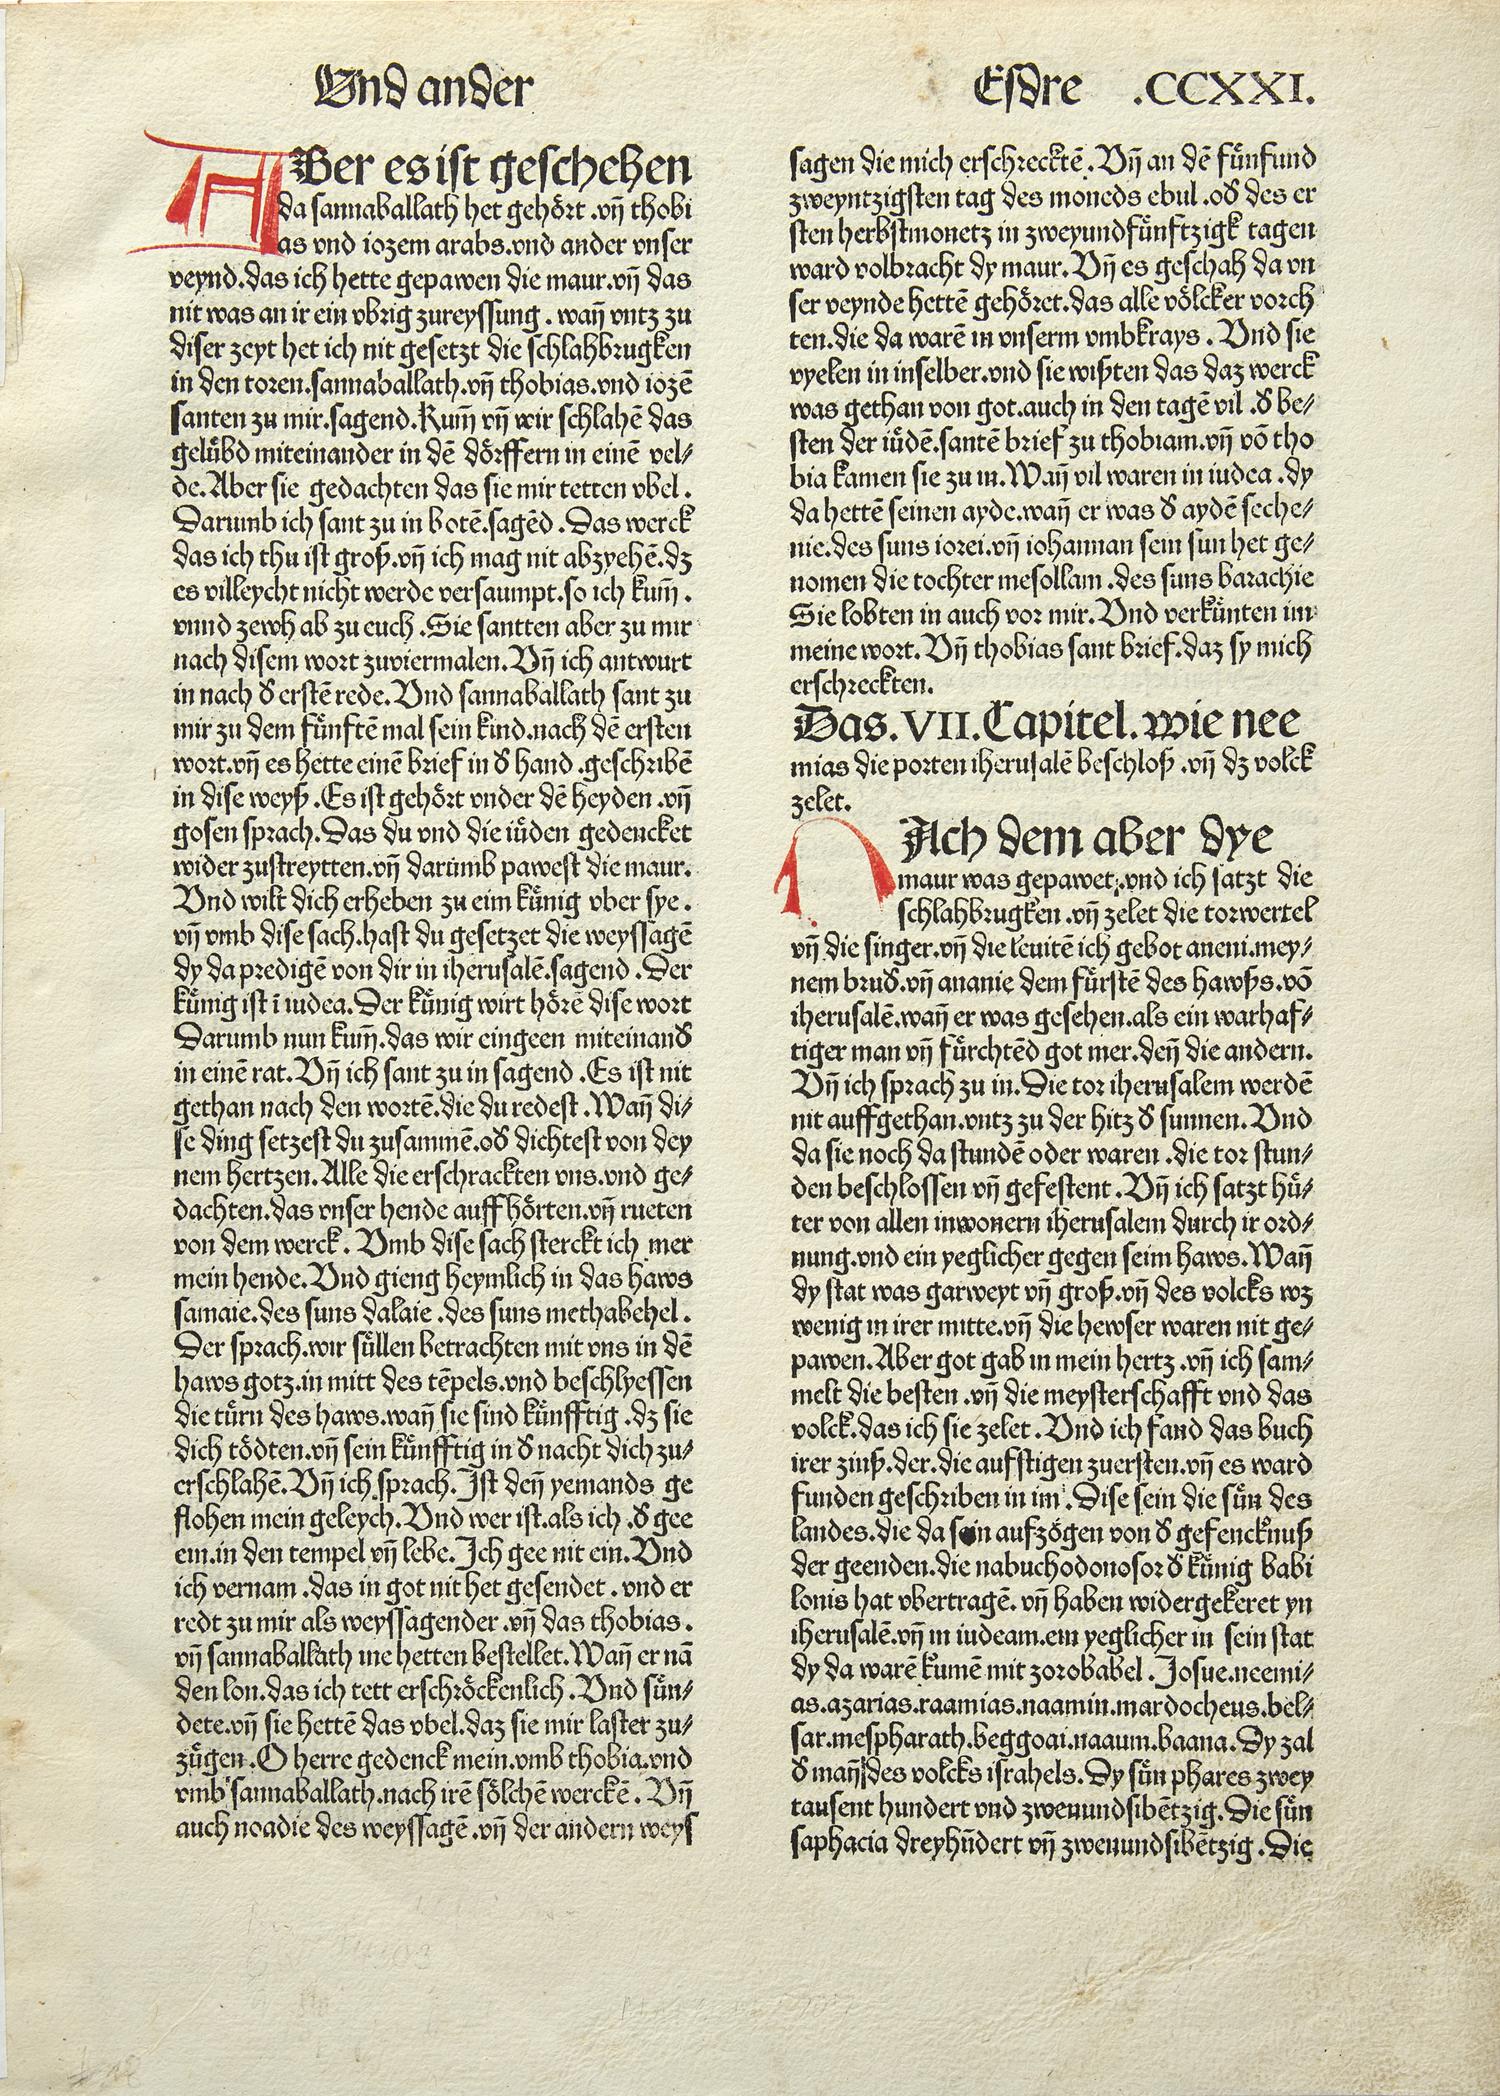 Und ander
Esdre .CCXXI.
ABer es ist geschehen
da sannaballath het gehört .vñ thobi
as vnd iozem arabs.vnd ander vnser
veynd.das ich hette gepawen die maur.vñ das
nit was an ir ein vbrig zureyssung . wañ vntz zu
diser zeyt het ich nit gesetzt die schlahbrugken
in den toren.sannaballath.vñ thobias.vnd iozē
santen zu mir.sagend.Kum̄ vñ wir schlahē das
gelübd miteinander in dē dörffern in einē vel⸗
de.Aber sie gedachten das sie mir tetten vbel .
Darumb ich sant zu in botē.sagēd .Das werck
das ich thu ist groß.vñ ich mag nit abzyehē.dz
es villeycht nicht werde versaumpt.so ich kum̄ .
vnnd zewh ab zu euch .Sie santten aber zu mir
nach disem wort zuviermalen.Vñ ich antwurt
in nach d̛ erstē rede.Vnd sannaballath sant zu
mir zu dem fünftē mal sein kind.nach dē ersten
wort.vñ es hette einē brief in d̛ hand .geschribē
in dise weyß .Es ist gehört vnder dē heyden .vñ
gosen sprach.Das du vnd die iüden gedencket
wider zustreytten.vñ darumb pawest die maur.
Vnd wilt dich erheben zu eim künig vber sye .
vñ vmb dise sach.hast du gesetzet die weyssagē
dy da predigē von dir in iherusalē.sagend .Der
künig ist ī iudea.Der künig wirt hörē dise wort
Darumb nun kum̄.das wir eingeen miteinand̛
in einē rat.Vñ ich sant zu in sagend .Es ist nit
gethan nach den wortē.die du redest .Wañ di⸗
se ding setzest du zusammē.od̛ dichtest von dey
nem hertzen.Alle die erschrackten vns.vnd ge⸗
dachten.das vnser hende auff hörten.vñ rueten
von dem werck. Vmb dise sach sterckt ich mer
mein hende.Vnd gieng heymlich in das haws
samaie.des suns dalaie .des suns methabehel .
Der sprach.wir süllen betrachten mit vns in dē
haws gotz.in mitt des tēpels.vnd beschlyessen
die türn des haws.wañ sie sind künfftig .dz sie
dich tödten.vñ sein künfftig in d̛ nacht dich zu⸗
erschlahē.Vñ ich sprach.Ist deñ yemands ge
flohen mein geleych.Vnd wer ist.als ich .d̛ gee
em.in den tempel vñ lebe.Ich gee nit ein.Vnd
ich vernam .das in got nit het gesendet . vnd er
redt zu mir als weyssagender .vñ das thobias .
vñ sannaballath ine hetten bestellet.Wañ er nā
den lon.das ich tett erschröckenlich .Vnd sün⸗
dete.vñ sie hettē das vbel.daz sie mir laster zu⸗
zügen .O herre gedenck mein.vmb thobia.vnd
vmb sannaballath.nach irē sölchē werckē . Vñ
auch noadie des weyssagē .vñ der andern weys
sagen die mich erschrecktē .Vñ an dē fünfund
zweyntzigsten tag des moneds ebul .od̛ des er
sten herbstmonetz in zweyundfünftzigk tagen
ward volbracht dy maur. Vñ es geschah da vn
ser veynde hettē gehöret.das alle völcker vorch
ten.die da warē in vnserm vmbkrays . Vnd sie
vyelen in inselber.vnd sie wißten das daz werck
was gethan von got.auch in den tagē vil .d̛ be⸗
sten der iüdē.santē brief zu thobiam.vñ vō tho
bia kamen sie zu in.Wañ vil waren in iudea .dy
da hettē seinen ayde.wañ er was d̛ aydē seche⸗
nie.des suns iorei.vñ iohannan sein sun het ge⸗
nomen die tochter mesollam .des suns barachie
Sie lobten in auch vor mir. Vnd verkünten im
meine wort. Vñ thobias sant brief.daz sy mich
erschreckten.
Das.VII.Capitel.wie nee
mias die porten iherusalē beschloß .vñ dz volck
zelet.
NAch dem aber dye
maur was gepawet.vnd ich satzt die
schlahbrugken .vñ zelet die torwertel
vñ die singer.vñ die leuitē ich gebot aneni.mey⸗
nem brud̛.vñ ananie dem fürstē des hawßs.vō
iherusalē.wañ er was gesehen.als ein warhaf⸗
tiger man vñ fürchtēd got mer.deñ die andern.
Vñ ich sprach zu in.Die tor iherusalem werdē
nit auffgethan.vntz zu der hitz d̛ sunnen. Vnd
da sie noch da stundē oder waren .die tor stun⸗
den beschlossen vñ gefestent .Vñ ich satzt hü⸗
ter von allen inwonern iherusalem durch ir ord⸗
nung.vnd ein yeglicher gegen seim haws.Wañ
dy stat was garweyt vñ groß.vñ des volcks wz
wenig in irer mitte.vñ die hewser waren nit ge⸗
pawen.Aber got gab in mein hertz .vñ ich sam⸗
melt die besten .vñ die meysterschafft vnd das
volck.das ich sie zelet . Vnd ich fand das buch
irer zinß.der.die aufstigen zuersten.vñ es ward
funden geschriben in im .Dise sein die sün des
landes.die da sein aufzögen von d̛ gefencknuß
der geenden.die nabuchodonosor d̛ künig babi
lonis hat vbertragē. vñ haben widergekeret yn
iherusalē.vñ in iudeam.ein yeglicher in sein stat
dy da warē kumē mit zorobabel . Josue.neemi⸗
as.azarias.raamias.naamin.mardocheus.bel⸗
sar.mespharath.beggoai.naaum.baana.Dy zal
d̛ mañ des volcks israhels.Dy sün phares zwey
tausent hundert vnd zwenundsibētzig.Die sün
saphacia dreyhūdert vñ zwenundsibētzig .Die